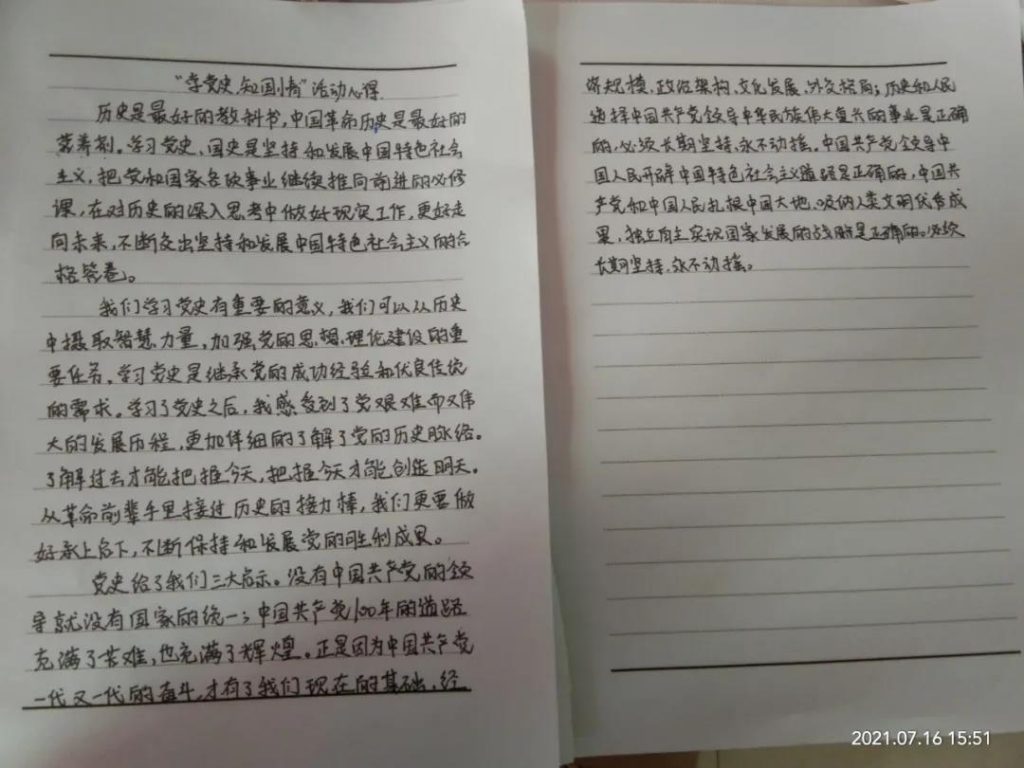 “学党史、知国情”活动心得
历史是最好的教科书,中国革命历史是最好的
营养剂。学习党史、国史是坚持和发展中国特色社会
主义,把党和国家各项事业继续推向前进的必修
课,在对历史的深入思考中做好现实工作,更好走
向未来,不断交出坚持和发展中国特色社会主义的合
格答卷。
我们学习党史有重要的意义,我们可以从历史
中摄取智慧力量,加强党的思想、理论建设的重
要任务。学习党史是继承党的成功经验和优良传统
的需求。学习了党史之后,我感受到了党艰难而又伟
大的发展历程,更加详细的了解了党的历史脉络。
了解过去才能把握今天,把握今天才能创造明天。
从革命前辈手里接过历史的接力棒,我们更要做
好承上启下,不断保持和发展党的胜利成果。
党史给了我们三大启示。没有中国共产党的领
导就没有国家的统一;中国共产党100年的道路
充满了苦难,也充满了辉煌。正是因为中国共产党
一代又一代的奋斗才有了我们现在的基础、经
济规模、政治架构、文化发展、外交格局;历史和人民
选择中国共产党领导中华民族伟大复兴的事业是正确
的,必须长期坚持、永不动摇。中国共产党领导中
国人民开辟中国特色社会主义道路是正确的,中国共
产党和中国人民扎根中国大地、吸纳人类文明优秀成
果,独立自主实现国家发展的战略是正确的。必须
长期坚持、永不动摇。
2021.07.16 15:51